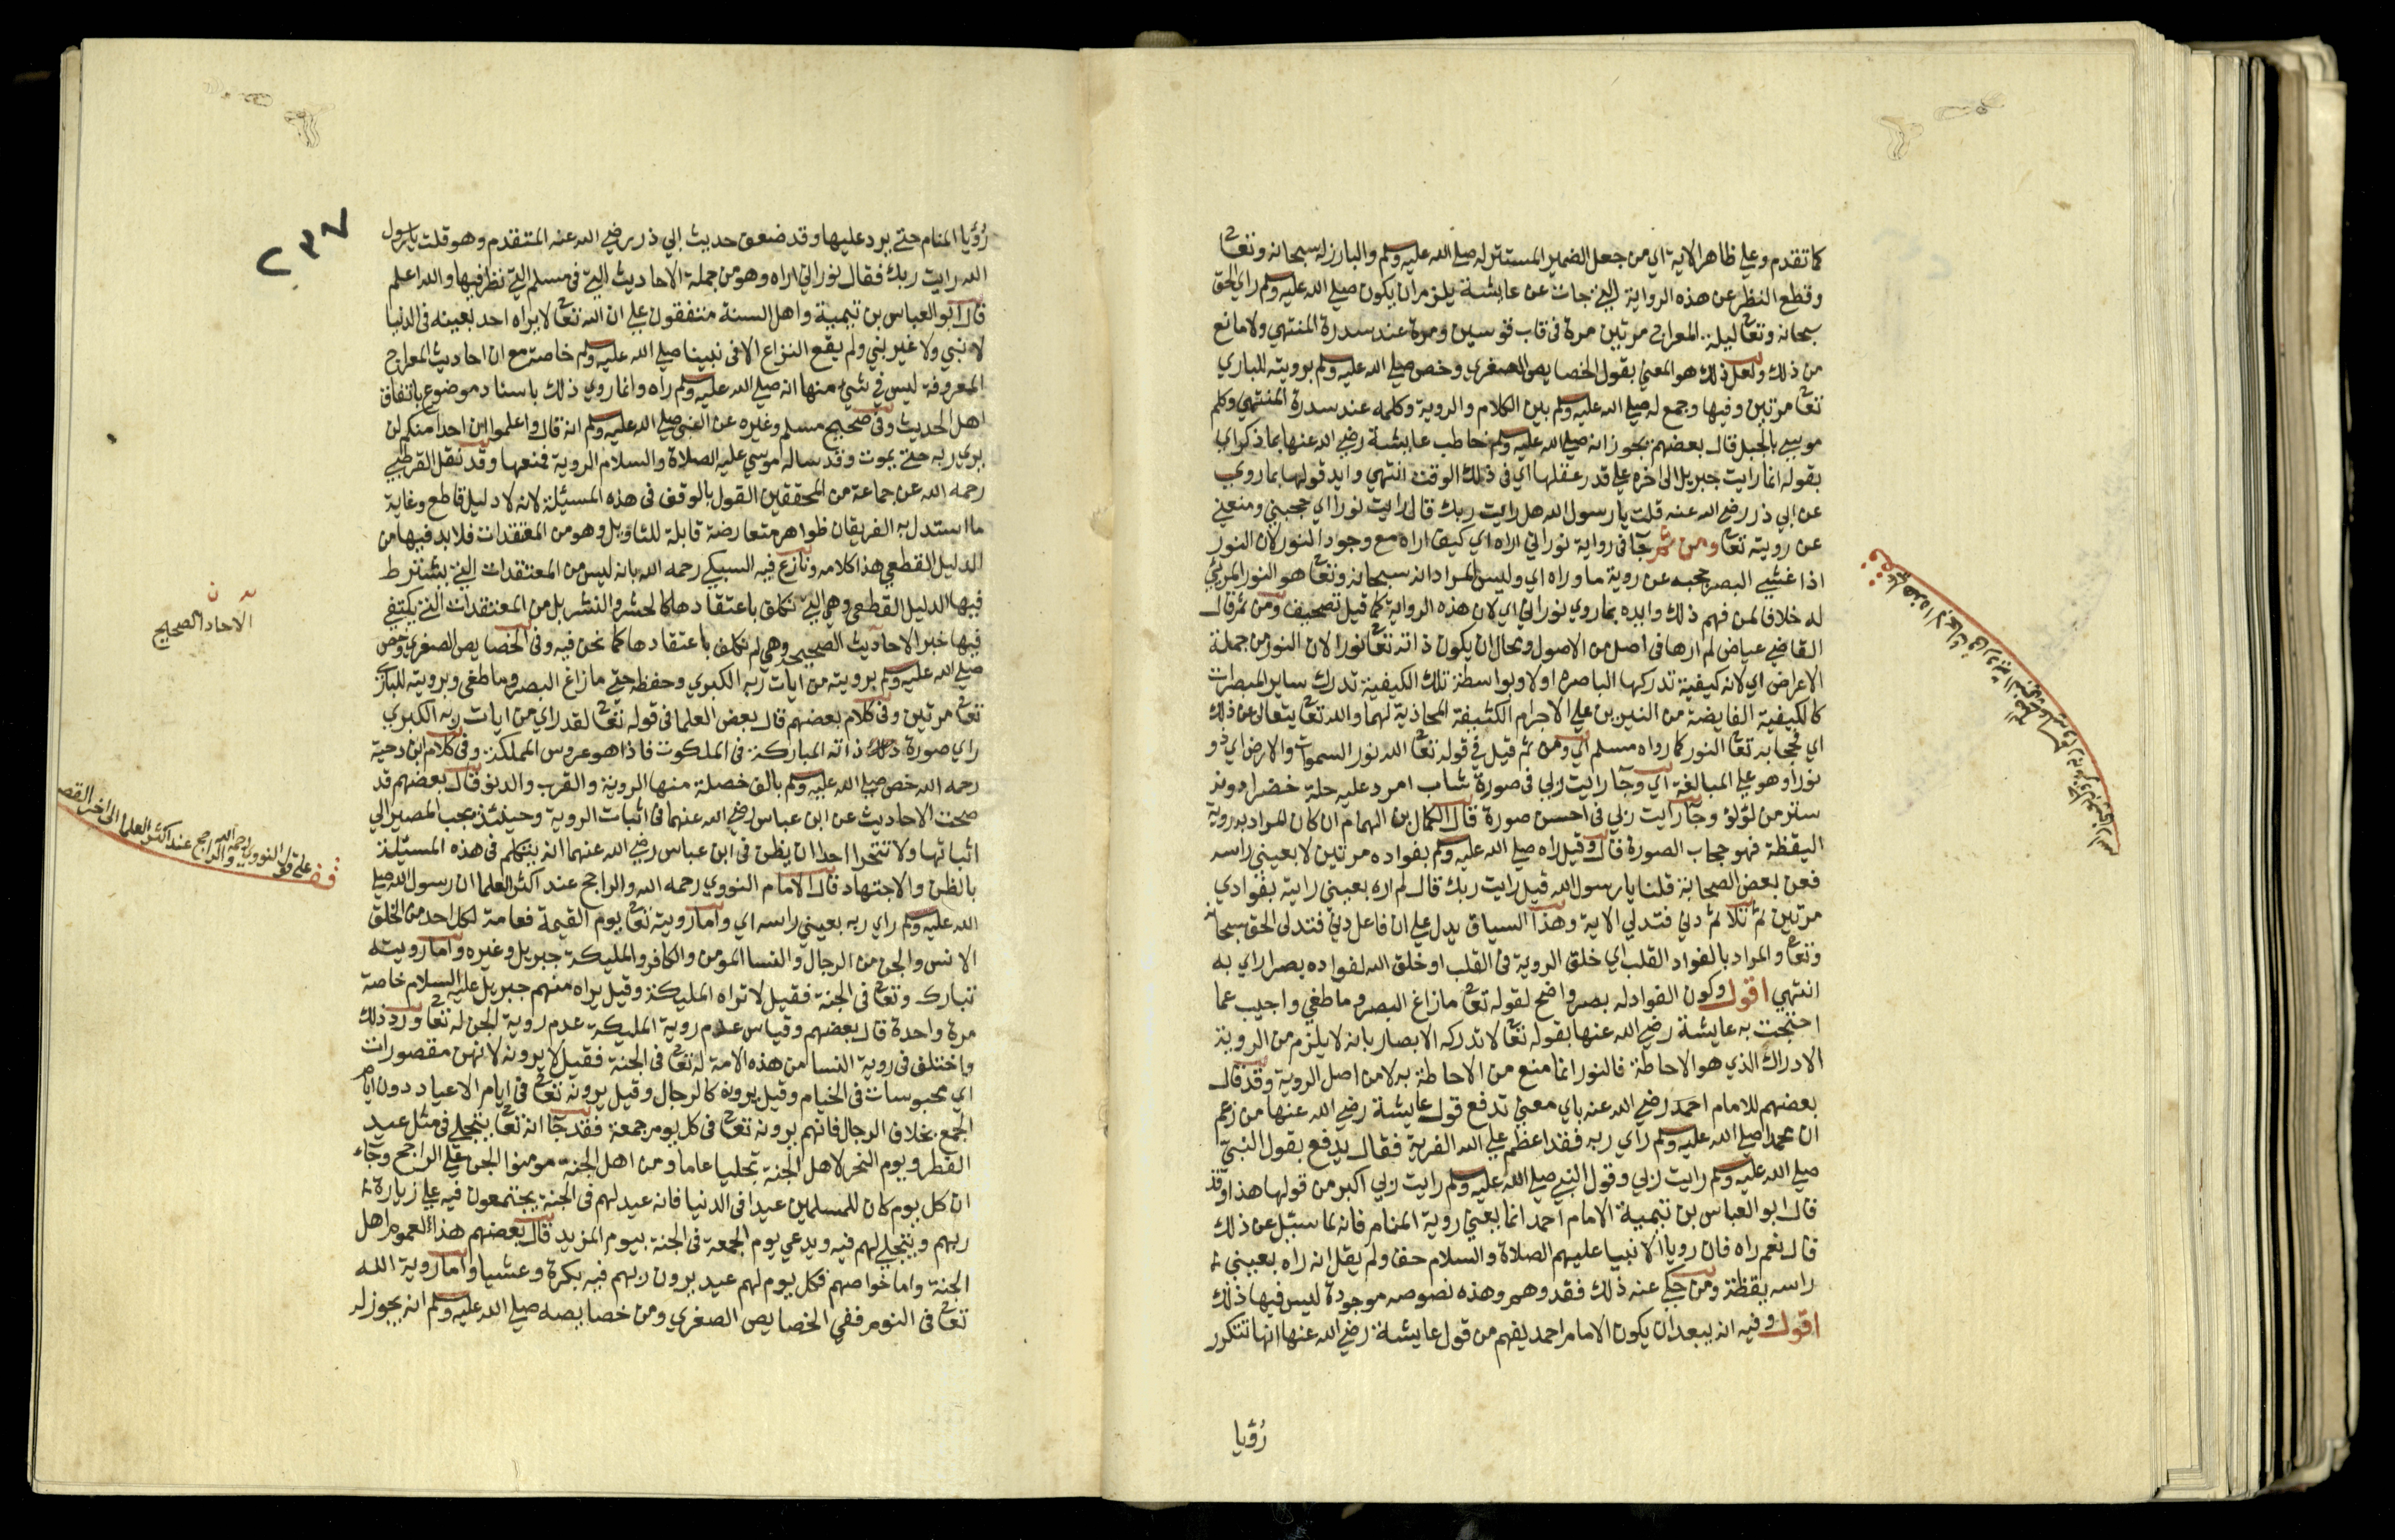 كما تقدم وعلي ظاهر الاية اي من جعل الضمير المستتر له صلي الله عليه وسلم والبارز له سبحانه وتعا
وقطع النظر عن هذه الرواية التي جات عن عايشة يلزم ان يكون صلي الله عليه وسلم راي الحق
سبحانه وتعا ليلة المعراج مرتين مرة في قاب قوسين ومرة عند سدرة المنتهي ولا مانع
من ذلك ولعل ذلك هو المعني بقول الخصايص الصغري وخص صلي الله عليه وسلم برويته للباري
تعا مرتين وفيها وجمع له صلي الله عليه وسلم بين الكلام والروية وكلمه عند سدرة المنتهي وكلم
موسي بالجبل قال بعضهم يجوز انه صلي الله عليه وسلم خاطب عايشة رضي الله عنها بما ذكر اي
بقوله انما رايت جبريل الي اخره علي قدر عقلها اي في ذلك الوقت انتهي وايد قولها بما روي
عن ابي ذر رضي الله عنه قلت يا رسول الله هل رايت ربك قال رايت نورا اي حجبني ومنعني
عن رويته تعا ومن ثم جآ في رواية نور اني اراه اي كيف اراه مع وجود النور لان النور
اذا غشي البصر حجبه عن روية ما وراه اي وليس المراد انه سبحانه وتعا هو النور المرئي
له خلافا لمن فهم ذلك وايده بما روي نوراني اي لان هذه الرواية كما قيل تصحيف ومن ثم قال
القاضي عياض لم ارها في اصل من الاصول ومحال ان يكون ذاته تعا نورا لان النور من جملة
الاعراض اي لانه كيفية تدركها الباصره اولا وبواسطة تلك الكيفية تدرك ساير المبصرات
كالكيفية الفايضة من النيرين علي الاجرام الكثيفة المحاذية لهما والله تعا يتعال عن ذلك
اي فحجابه تعا النور كما رواه مسلم اي ومن ثم قيل في قوله تعا الله نور السموات والارض اي ذو
نور او هو علي المبالغة اي وجآ رايت ربي في صورة شاب امرد عليه حلة خضرا دونه
ستر من لؤلؤ وجآ رايت ربي في احسن صورة قال الكمال بن الهمام ان كان المراد به روية
اليقظة فهو حجاب الصورة قال وقيل راه صلي الله عليه وسلم بفواده مرتين لا بعيني راسه
فعن بعض الصحابة قلنا يا رسول الله قيل رايت ربك قال لم اره بعيني رايته بفوادي
مرتين ثم تلا ثم دني فتدلي الاية وهذا السياق يدل علي ان فاعل دني فتدلي الحق سبحانه
وتعا والمراد بالفواد القلب اي خلق الروية في القلب او خلق الله لفواده بصرا راي به
انتهي اقول وكون الفواد له بصر واضح لقوله تعا ما زاغ البصر وما طغي واجيب عما
احتجت به عايشة رضي الله عنها بقوله تعا لا تدركه الابصار بانه لا يلزم من الروية
الادراك الذي هو الاحاطة فالنور انما منع من الاحاطة به لا من اصل الروية وقد قال
بعضهم للامام احمد رضي الله عنه باي معني تدفع قول عايشة رضي الله عنها من زعم
ان محمدا صلي الله عليه وسلم راي ربه فقد اعظم علي الله الفرية فقال يدفع بقول النبي
صلي الله عليه وسلم رايت ربي وقول النبي صلي الله عليه وسلم رايت ربي اكبر من قولها هذا وقد
قال ابو العباس بن تيمية الامام احمد انما يعني روية المنام فانه لما سئيل عن ذلك
قال نعم راه فان رويا الانبيا عليهم الصلاة والسلام حق ولم يقل انه راه بعيني
راسه يقظة ومن حكي عنه ذلك فقد وهم وهذه نصوصه موجودة ليس فيها ذلك
اقول وفيه انه يبعد ان يكون الامام احمد يفهم من قول عايشة رضي الله عنها انها تنكرر
رؤيا
٢٣٧
رؤيا المنام حتي يرد عليها وقد ضعف حديث ابي ذر رضي الله عنه المتقدم وهو قلت يا رسول
الله رايت ربك فقال نوراني اراه وهو من جملة الاحاديث التي في مسلم التي نظر فيها والله اعلم
قال ابو العباس بن تيمية واهل السنة متفقون علي ان الله تعا لا يراه احد بعينه في الدنيا
لا نبي ولا غير نبي ولم يقع النزاع الا في نبينا صلي الله عليه وسلم خاصة مع ان احاديث المعراج
المعروفة ليس في شيئ منها انه صلي الله عليه وسلم راه وانما روي ذلك باسناد موضوع باتفاق
اهل الحديث وفي صحيح مسلم وغيره عن النبي صلي الله عليه وسلم انه قال واعلموا ان احدا منكم لن
يري ربه حتي يموت وقد ساله موسي عليه الصلاة والسلام الروية فمنعها وقد نقل القرطبي
رحمه الله عن جماعة من المحققين القول بالوقف في هذه المسئيلة لانه لا دليل قاطع وغاية
ما استدل به الفريقان ظواهر متعارضة قابلة للتاويل وهو من المعتقدات فلا بد فيها من
الدليل القطعي هذا كلامه ونازع فيه السبكي رحمه الله بانه ليس من المعتقدات التي يشترط
فيها الدليل القطعي وهي التي نكلف باعتقادها كالحشر والنشر بل من المعتقدات التي يكتفي
فيها خبر الاحاديث الصحيح وهي لم نكلف باعتقادها كما نحن فيه وفي الخصايص الصغري وخص
صلي الله عليه وسلم برويته من ايات ربه الكبري وحفظه حتي ما زاغ البصر وما طغي وبرويته للباري
تعا مرتين وفي كلام بعضهم قال بعض العلما في قوله تعا لقد راي من ايات ربه الكبري
راي صورة ذاته المباركة في الملكوت فاذا هو عروس المملكة وفي كلام ابن دحية
رحمه الله خص صلي الله عليه وسلم بالف خصلة منها الروية والقرب والدنو قال بعضهم قد
صحت الاحاديث عن ابن عباس رضي الله عنهما في اثبات الروية وحينئذ يجب المصير الي
اثباتها ولا تتجرا احدا ان يظن في ابن عباس رضي الله عنهما انه يتكلم في هذه المسئيلة
بالظن والاجتهاد قال الامام النووي رحمه الله والراجح عند اكثر العلما ان رسول الله صلي
الله عليه وسلم راي ربه بعيني راسه اي واما رويته تعا يوم القيمة فعامة لكل احد من الخلق
الانس والجن من الرجال والنسا المومن والكافر والمليكة جبريل وغيره واما رويته
تبارك وتعا في الجنة فقيل لا تراه المليكة وقيل يراه منهم جبريل عليه السلام خاصة
مرة واحدة قال بعضهم وقياس عدم روية المليكة عدم روية الجن له تعا ورد ذلك
واختلف في روية النسا من هذه الامة له تعا في الجنة فقيل لا يرونه لانهن مقصورات
اي محبوسات في الخيام وقيل يرونه كالرجال وقيل يرونه تعا في ايام الاعياد دون ايام
الجمع بخلاف الرجال فانهم يرونه تعا في كل يوم جمعة فقد جآ انه تعا يتجلي في مثل عيد
الفطر ويوم النحر لاهل الجنة تجليا عاما ومن اهل الجنة مومنوا الجن علي الراجح وجآء
ان كل يوم كان للمسلمين عيدا في الدنيا فانه عيد لهم في الجنة يجتمعون فيه علي زيارة
ربهم ويتجلي لهم فيه ويدعي يوم الجمعة في الجنة بيوم المزيد قال بعضهم هذا العموم اهل
الجنة واما خواصهم فكل يوم لهم عيد يرون ربهم فيه بكرة وعشيا واما روية الله
تعا في النوم ففي الخصايص الصغري ومن خصايصه صلي الله عليه وسلم انه يجوز له
الاحاد الصحيح
قف علي قول النووي رحمه الله والراجح عند اكثر العلما الي اخر القصه